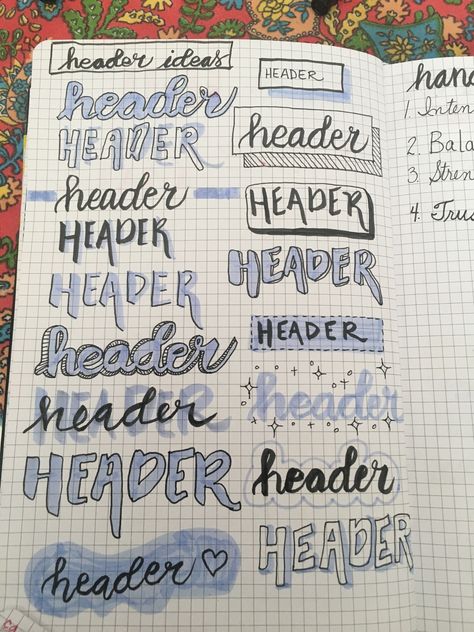 header ideas
header
HEADER
header
HEADER
HEADER
header
HEADER
header
HEADER
header ♡
HEADER
header
HEADER
HEADER
HEADER
header
header
HEADER
han
1. Inten
2. Bala
3. Stren
4. Trus